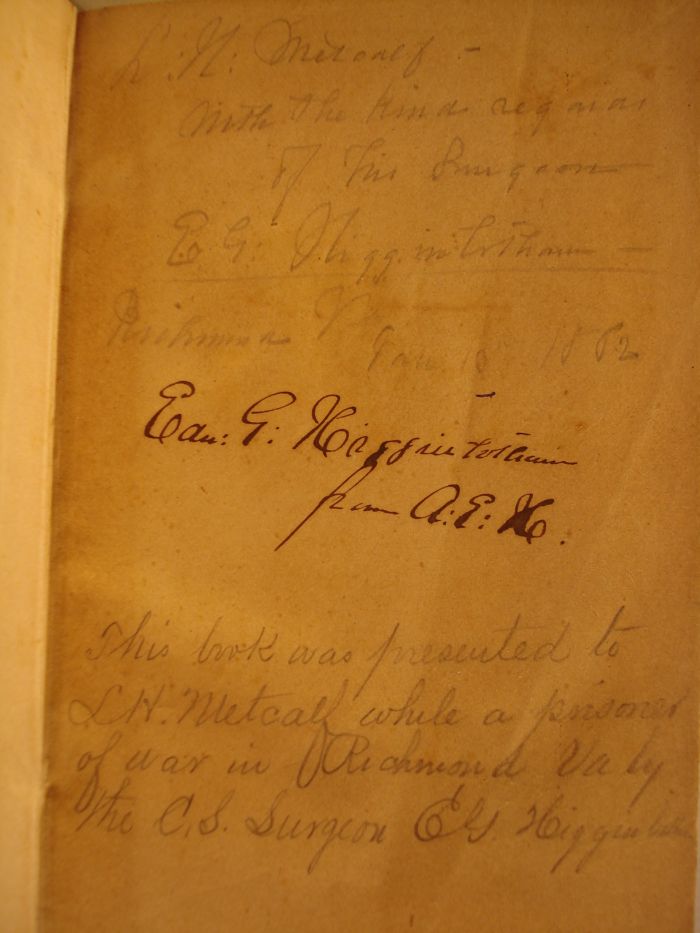 L. H. Metcalf -
With the kind regards
of his Surgeon
E. G. Higginbotham -
Richmond Va
Jan 1862
Edw: G: Higginbotham
from A: E: H.
This book was presented to
L H. Metcalf while a prisoner
of war in Richmond Va by
the C. S. Surgeon E G. Higginbotham